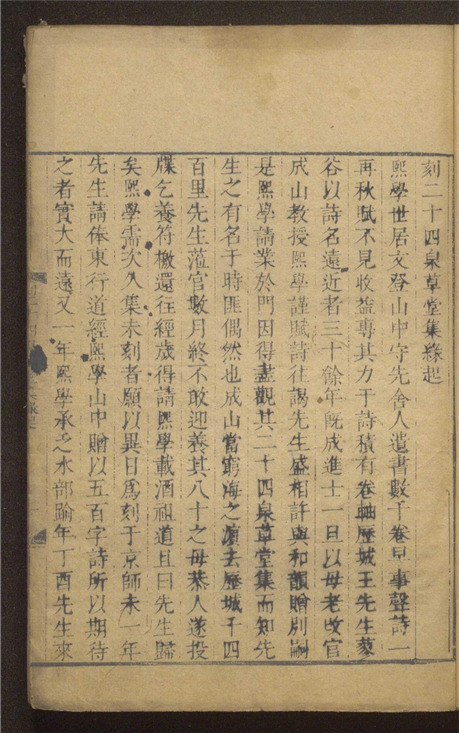 刻二十四泉草堂集緣起
熙學世居文登山中守先舍人遺書數千卷早事聲詩一
再秋賦不見收益專其力于詩積有卷軸歷城王先生蓼
谷以詩名遠近者三十餘年旣成進士一旦以母老改官
成山教授熙學謹賦詩往謁先生盛相許與和韻贈別嗣
是熙學請業於門因得盡觀其二十四泉草堂集而知先
生之有名于時匪偶然也成山當窮海之濵去歷城千四
百里先生蒞官數月終不敢迎養其八十之母恭人遂投
牒乞養符檄還往經歲得請熙學載酒祖道且曰先生歸
矣熙學需次久集未刻者願以異日爲刻于京師未一年
先生請俸東行道經熙學山中贈以五百字詩所以期待
之者實大而遠又一年熙學承乏水部踰年丁酉先生來